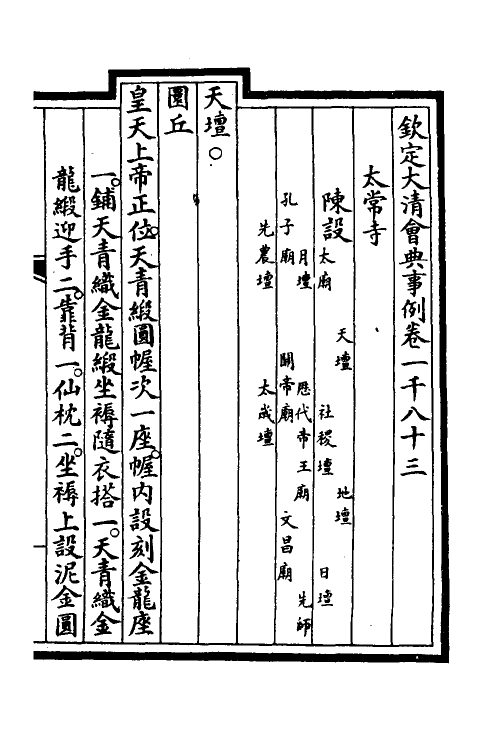 欽定大清會典事例卷一千八十三
太常寺
陳設
天壇　地壇
太廟　社稷壇　日壇
月壇　歷代帝王廟　先師
孔子廟　關帝廟　文昌廟
先農壇　太歲壇
天壇○
圜丘
皇天上帝正位。天青緞圓幄次一座。幄內設刻金龍座
一。鋪天青織金龍緞坐褥隨衣搭一。天青織金
龍緞迎手二。靠背一。仙枕二。坐褥上設泥金圓